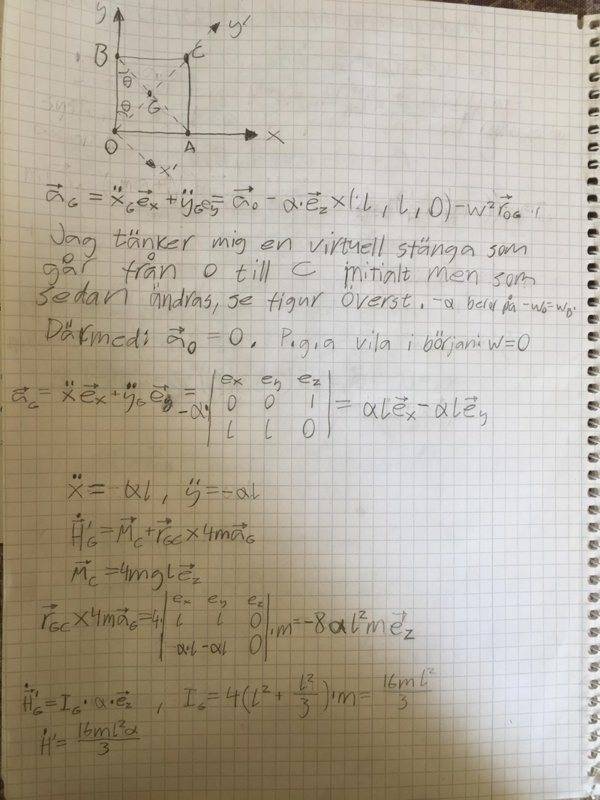 y
y'
B
C
θ
G
θ
O
A
x
x'
a⃗_G = ẍ_G e⃗_x + ÿ_G e⃗_y = a⃗_0 - α·e⃗_z × (l, l, 0) - w² r⃗_OG
Jag tänker mig en virtuell stånga som
går från 0 till C initialt men som
sedan ändras, se figur överst. -α beror på -w_0=w_0.
Därmed: a⃗_0 = 0. P.g.a vila i början: w=0
a⃗_G = ẍ e⃗_x + ÿ_G e⃗_y = -α· | e_x e_y e_z | = αl e⃗_x - αl e⃗_y
0 0 1
l l 0
ẍ = -αl , ÿ = -αl
H⃗̇'_G = M⃗_C + r⃗_GC × 4m a⃗_G
M⃗_C = 4mgl e⃗_z
r⃗_GC × 4m a⃗_G = 4· | e_x e_y e_z | ·m = -8αl²m e⃗_z
l l 0
α·l -αl 0
H⃗̇'_G = I_G·α·e⃗_z , I_G = 4(l² + l²/3)·m = 16ml²/3
Ḣ' = 16ml²α/3